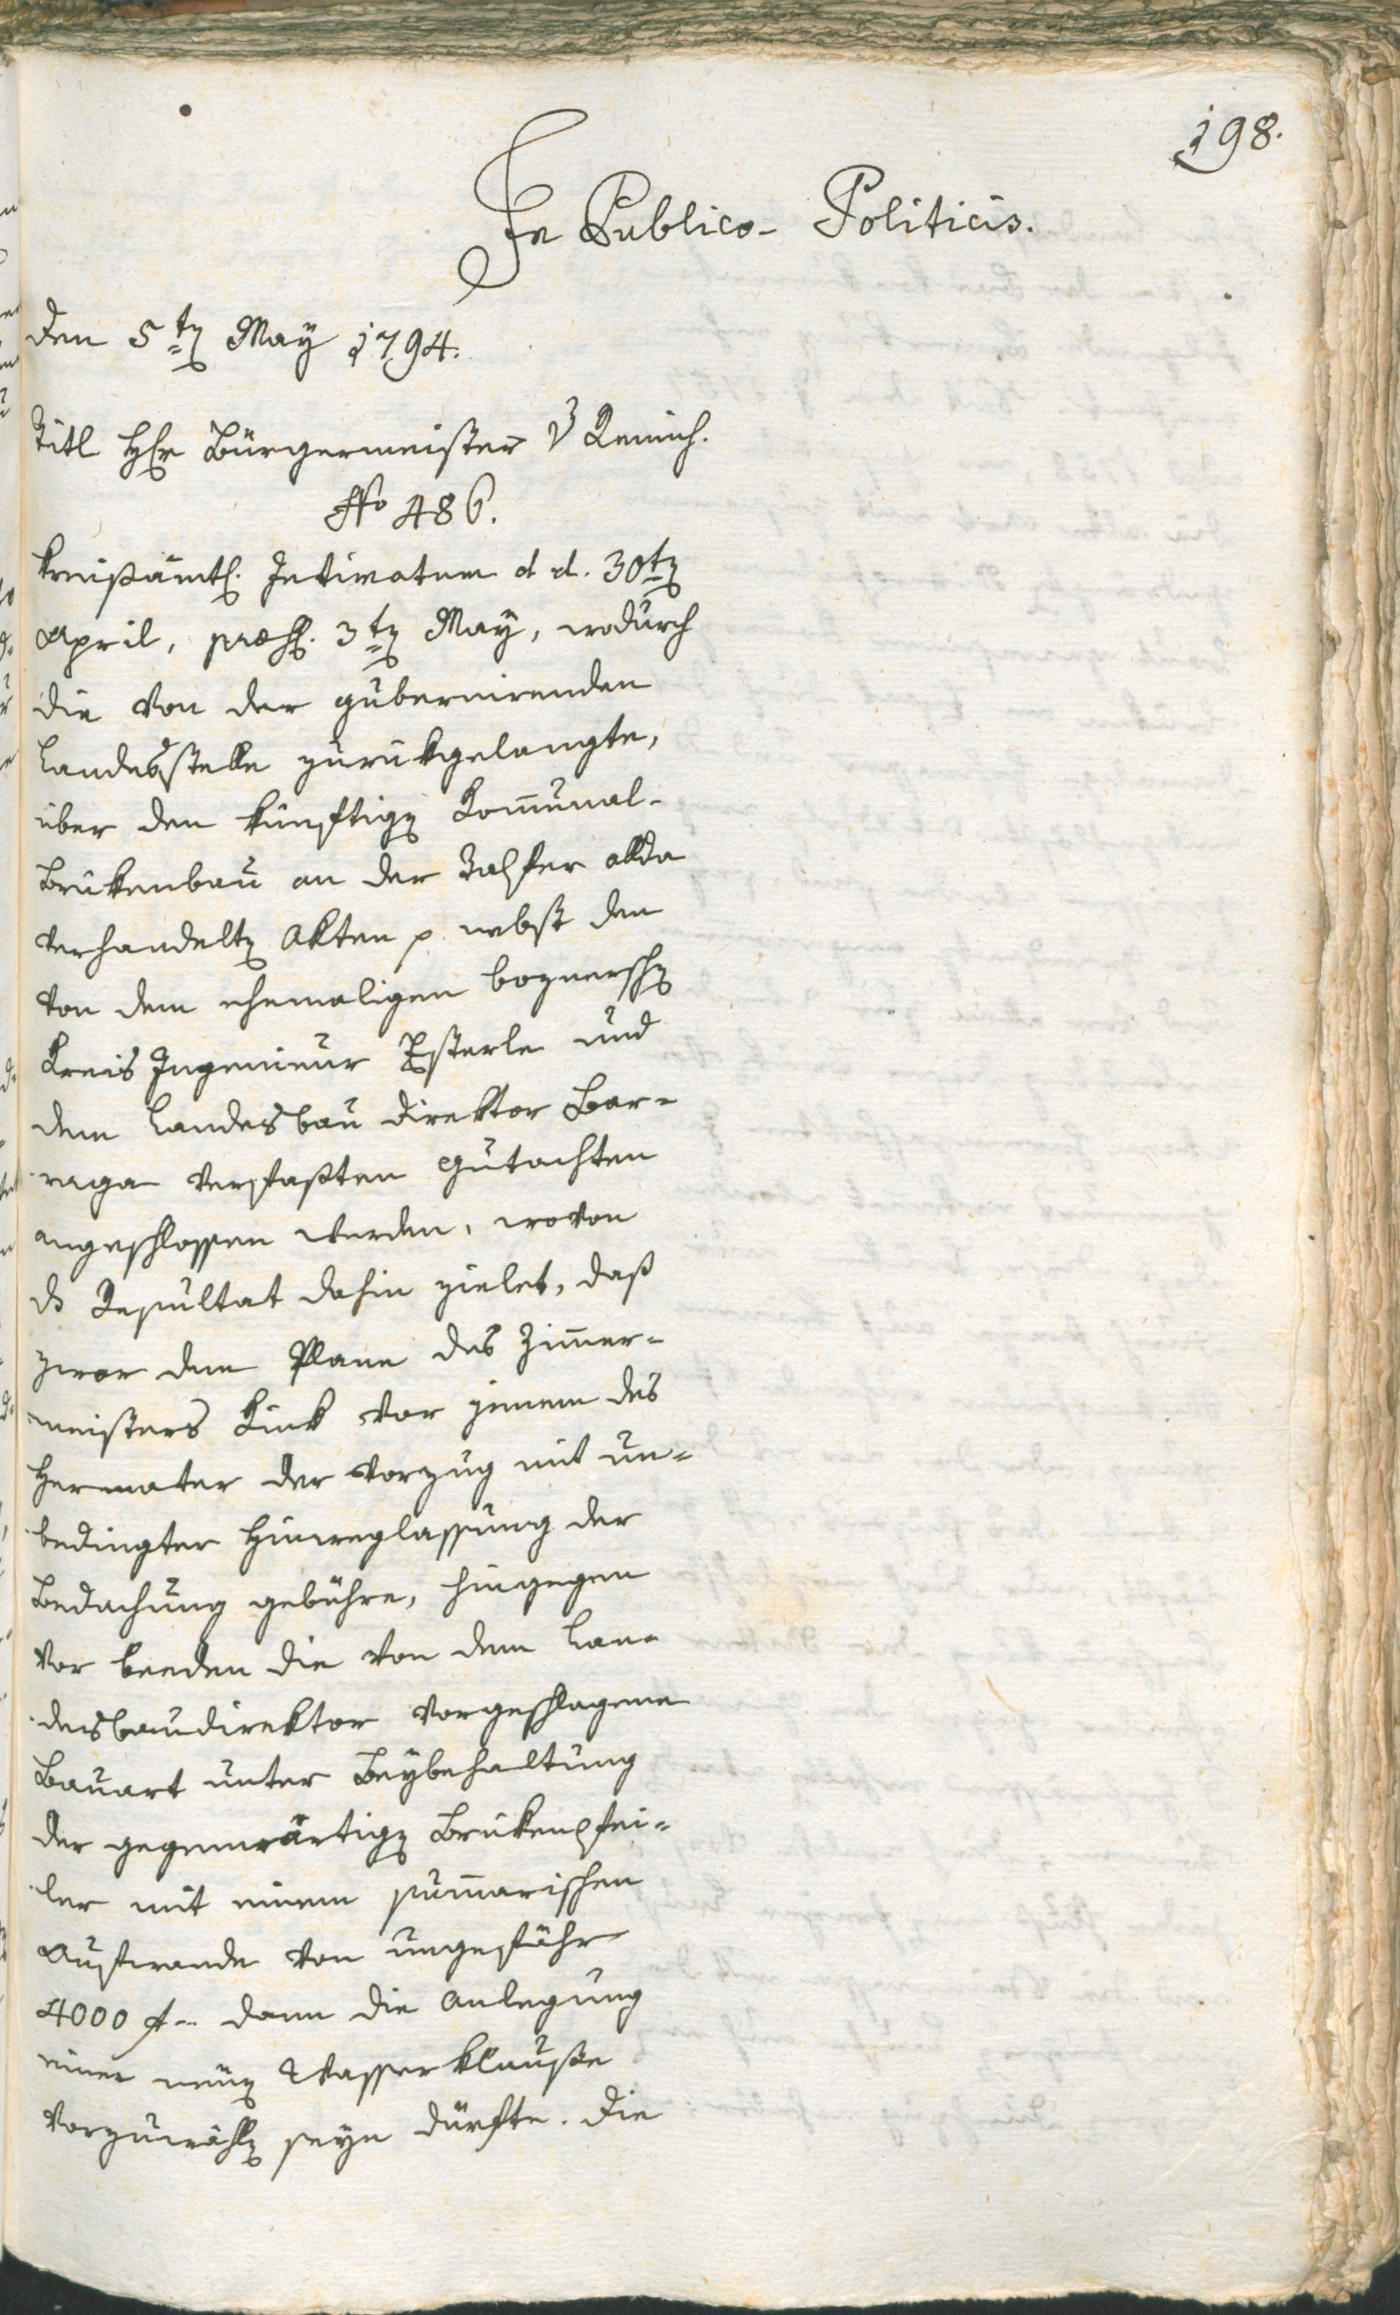 198.
In Publico-Politicis.
Den 5ten May 1794.
Titl Hr Bürgermeister v Remich.
No 486.
Kreisämtl. Intimatum d d. 30ten
April, præs. 3ten May, wodurch
die von der gubernirenden
Landesstelle zurükgelangte,
über den künftigen Kom̄unal-
Brükenbau an der Talfer allda
verhandelten Akten p. nebst den
von dem ehemaligen boznerischen
Kreis Ingenieur Esterle und
dem Landesbau Direktor Bar-
raga verfaßten Gutachten
angeschlossen werden, wovon
ds Resultat dahin zielet, daß
zwar dem Plane des Zim̄er-
meisters Kink vor jenem des
Hermeter der Vorzug mit un-
bedingter Hinweglassung der
Bedachung gebühre, hingegen
vor beeden die von dem Lan-
desbaudirektor vorgeschlagene
Bauart unter Beybehaltung
der gegenwärtigen Brükenpfei-
ler mit einem sum̄arischen
Aufwande von ungefähr
4000 f dann die Anlegung
einer neuen Wasserklauße
vorzuwählen seyn dürfte. Die